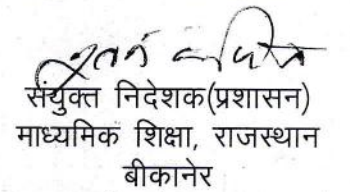 संयुक्त निदेशक(प्रशासन)
माध्यमिक शिक्षा, राजस्थान
बीकानेर